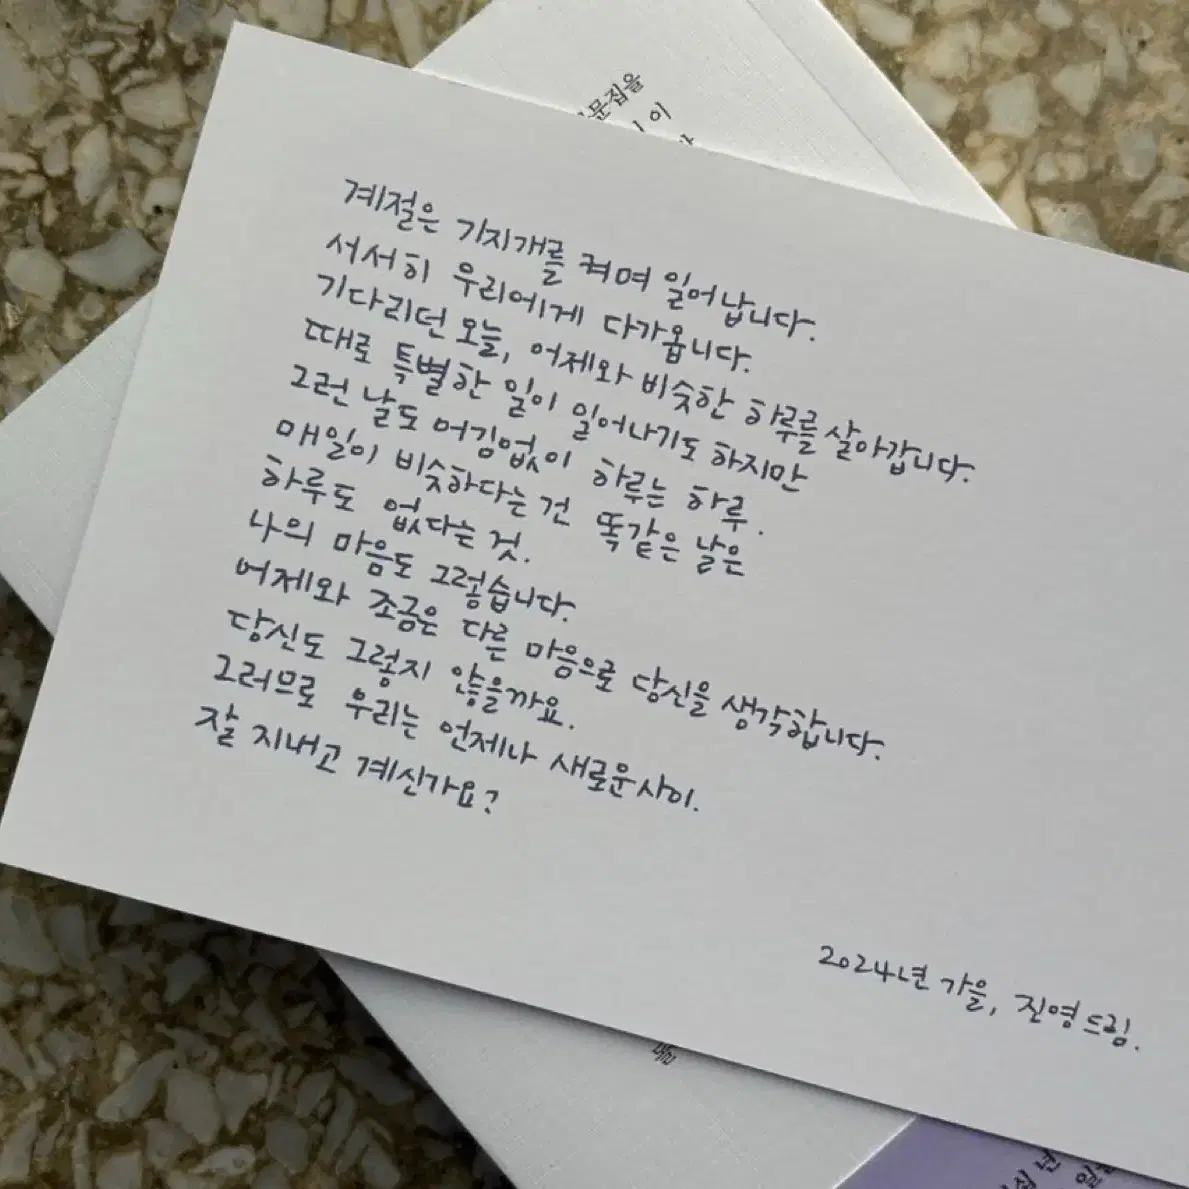 문집을
이
계절은 기지개를 켜며 일어납니다.
서서히 우리에게 다가옵니다.
기다리던 오늘, 어제와 비슷한 하루를 살아갑니다.
때로 특별한 일이 일어나기도 하지만
그런 날도 어김없이 하루는 하루.
매일이 비슷하다는 건 똑같은 날은
하루도 없다는 것.
나의 마음도 그렇습니다.
어제와 조금은 다른 마음으로 당신을 생각합니다.
당신도 그렇지 않을까요.
그러므로 우리는 언제나 새로운 사이.
잘 지내고 계신가요?
2024년 가을, 진영 드림.
십 년